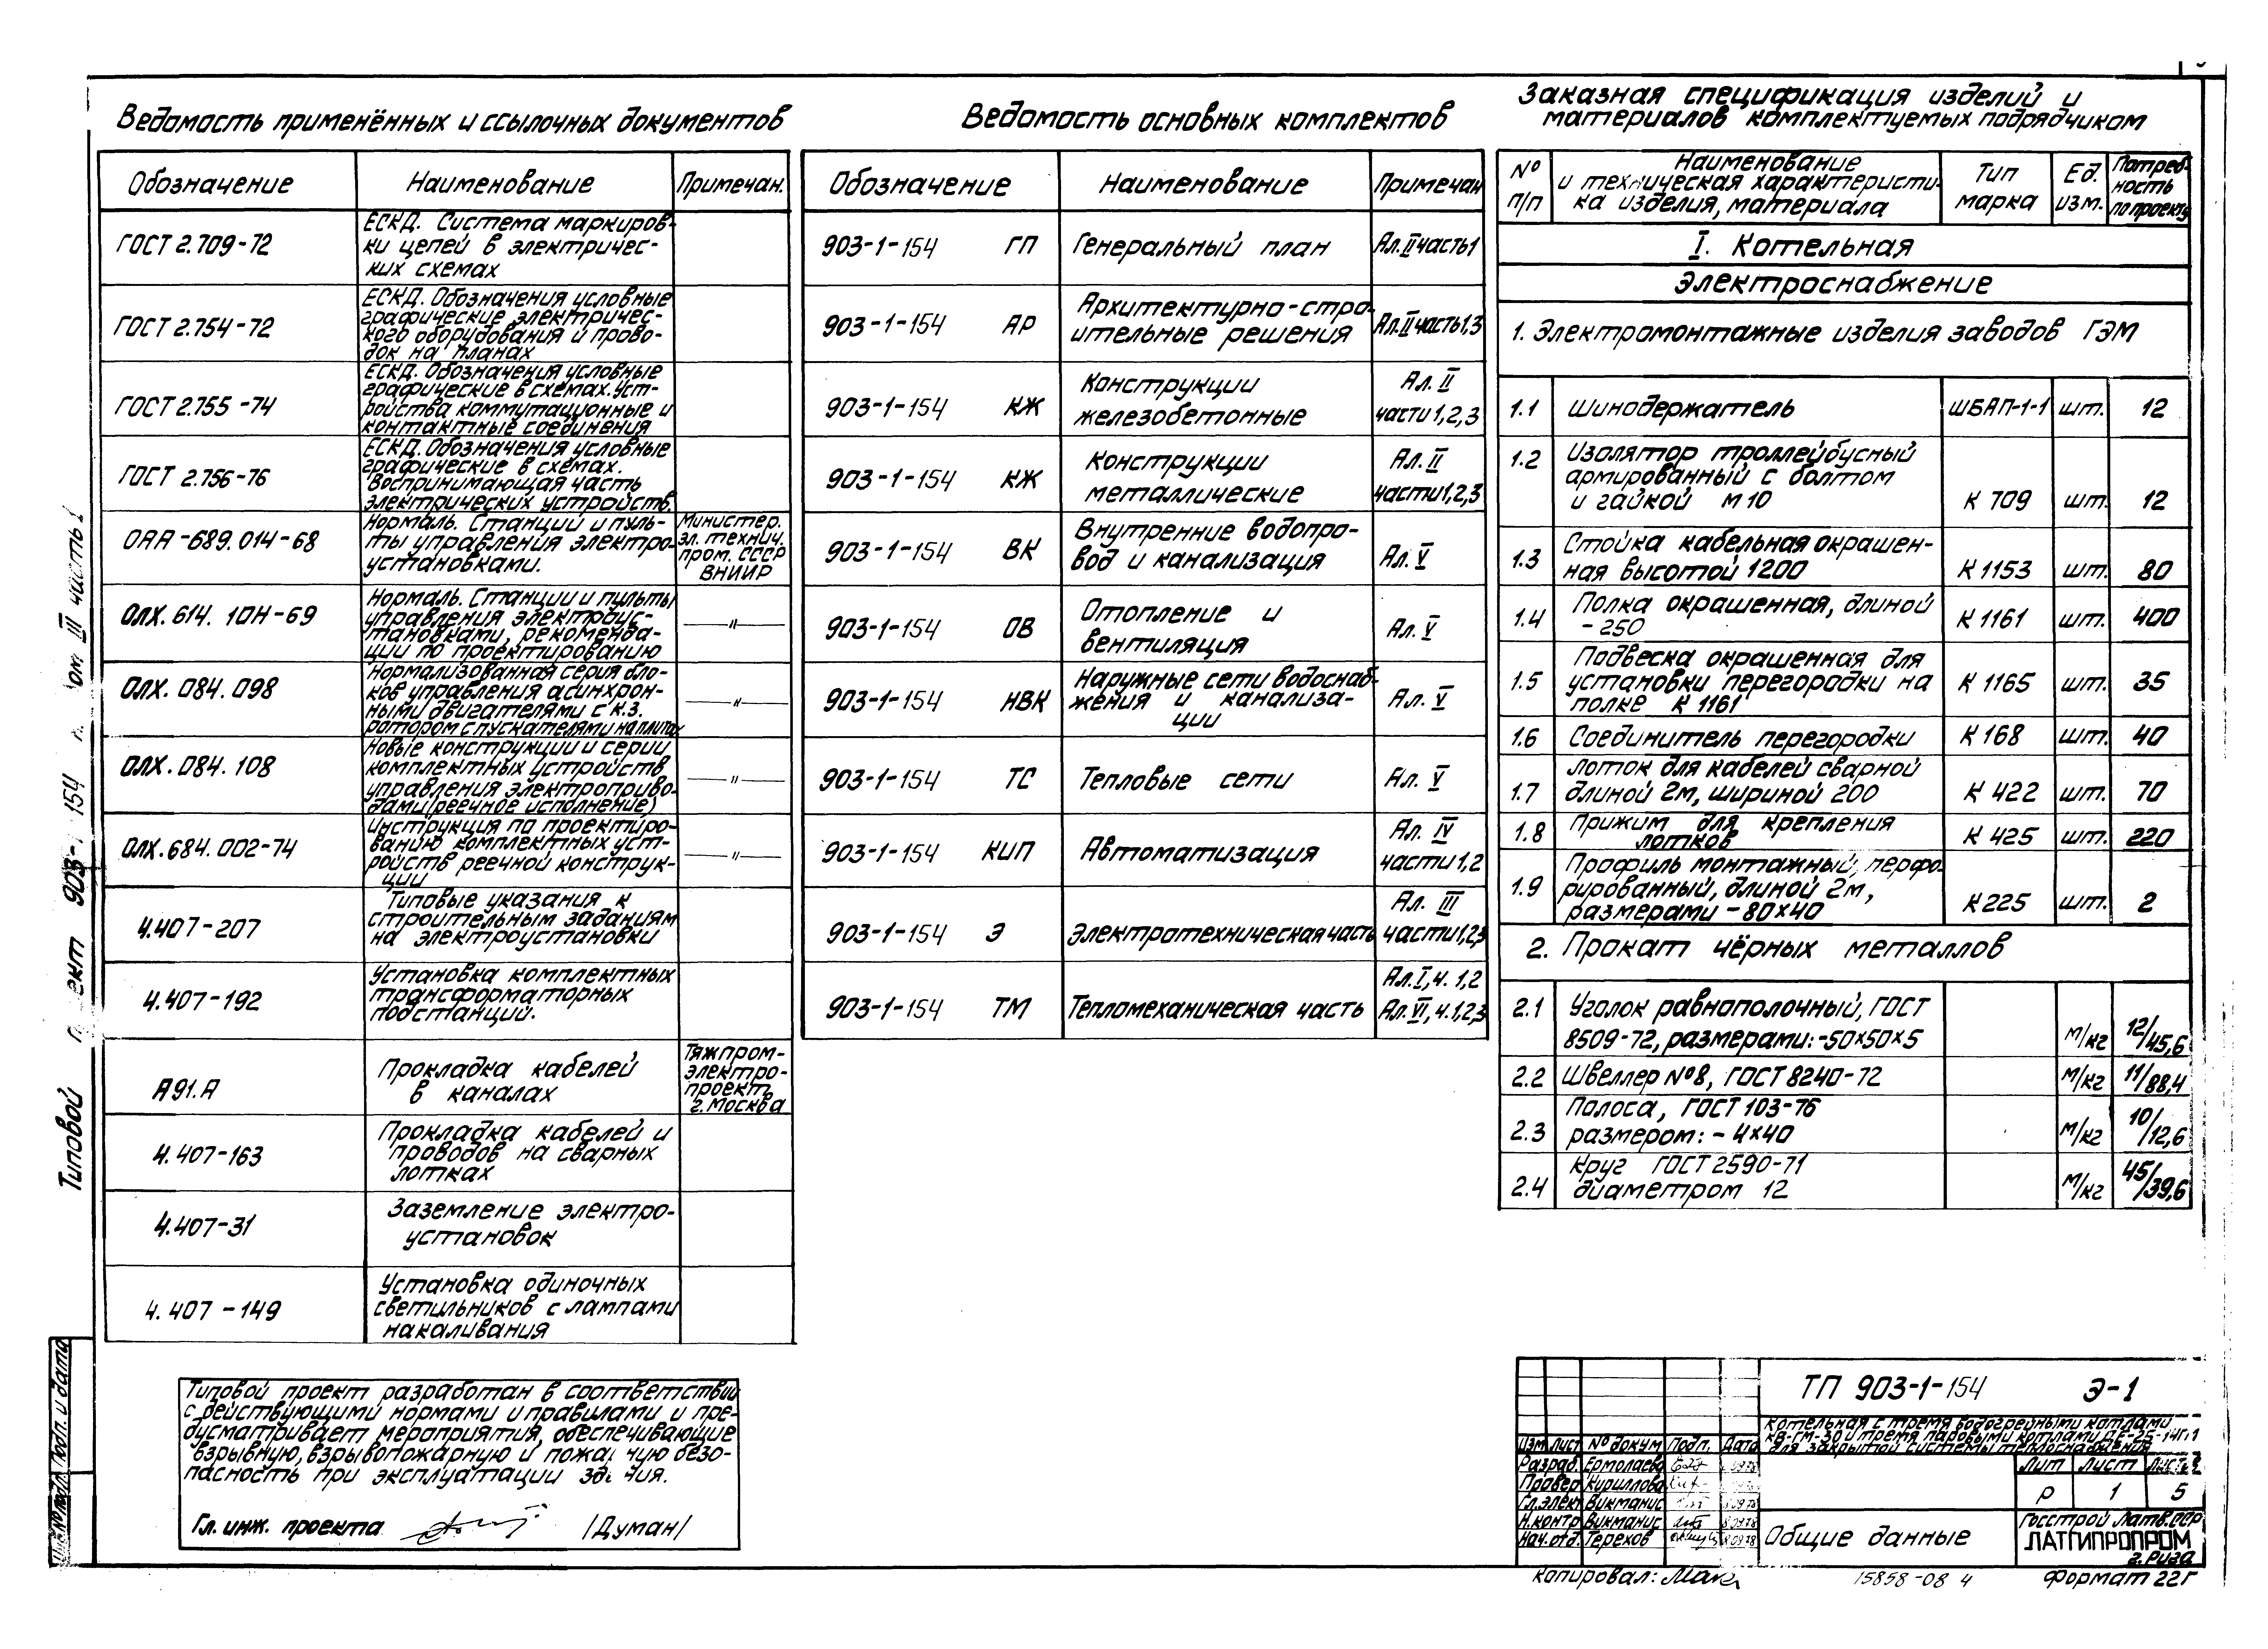 Ведомость применённых и ссылочных документов
Обозначение
Наименование
Примечан.
ГОСТ 2.709-72
ЕСКД. Система маркиров-
ки цепей в электричес-
ких схемах
ГОСТ 2.754-72
ЕСКД. Обозначения условные
графические электричес-
кого оборудования и прово-
док на планах
ГОСТ 2.755-74
ЕСКД. Обозначения условные
графические в схемах. Уст-
ройства коммутационные и
контактные соединения
ГОСТ 2.756-76
ЕСКД. Обозначения условные
графические в схемах.
Воспринимающая часть
электрических устройств.
ОАА-689.014-68
Нормаль. Станций и пуль-
ты управления электро-
установками.
Министер.
эл. технич.
пром. СССР
ВНИИР
ОЛХ.614.10Н-69
Нормаль. Станции и пульты
управления электроус-
тановками, рекоменда-
ции по проектированию
—〃—
ОЛХ.084.098
Нормализованная серия бло-
ков управления асинхрон-
ными двигателями с к.з.
ротором с пускателями на плитах
—〃—
ОЛХ.084.108
Новые конструкции и серии
комплектных устройств
управления электроприво-
дами (реечное исполнение)
—〃—
ОЛХ.684.002-74
Инструкция по проектиро-
ванию комплектных уст-
ройств реечной конструк-
ции
—〃—
4.407-207
Типовые указания к
строительным заданиям
на электроустановки
4.407-192
Установка комплектных
трансформаторных
подстанций.
А91.А
Прокладка кабелей
в каналах
Тяжпром-
электро-
проект
г. Москва
4.407-163
Прокладка кабелей и
проводов на сварных
лотках
4.407-31
Заземление электро-
установок
4.407-149
Установка одиночных
светильников с лампами
накаливания
Типовой проект разработан в соответствии
с действующими нормами и правилами и пре-
дусматривает мероприятия, обеспечивающие
взрывную, взрывопожарную и пожа ную безо-
пасность при эксплуатации зд ния.
Гл. инж. проекта /Думан/
Ведомость основных комплектов
Обозначение
Наименование
Примечан
903-1-154 ГП
Генеральный план
Ал. II часть 1
903-1-154 АР
Архитектурно-стро-
ительные решения
Ал. II часть 1,3
903-1-154 КЖ
Конструкции
железобетонные
Ал. II
части 1,2,3
903-1-154 КЖ
Конструкции
металлические
Ал. II
части 1,2,3
903-1-154 ВК
Внутренние водопро-
вод и канализация
Ал. V
903-1-154 ОВ
Отопление и
вентиляция
Ал. V
903-1-154 НВК
Наружные сети водоснаб-
жения и канализа-
ции
Ал. V
903-1-154 ТС
Тепловые сети
Ал. V
903-1-154 КИП
Автоматизация
Ал. IV
части 1,2
903-1-154 Э
Электротехническая часть
Ал. III
части 1,2,3
903-1-154 ТМ
Тепломеханическая часть
Ал. I, ч. 1,2
Ал. VI, ч. 1,2,3
Заказная спецификация изделий и
материалов комплектуемых подрядчиком
№ п/п
Наименование
и техническая характеристи-
ка изделия, материала
Тип
марка
Ед.
изм.
Потреб-
ность
по проекту
I. Котельная
Электроснабжение
1. Электромонтажные изделия заводов ГЭМ
1.1 Шинодержатель ШБАП-1-1 шт. 12
1.2 Изолятор троллейбусный
армированный с болтом
и гайкой М10 К 709 шт. 12
1.3 Стойка кабельная окрашен-
ная высотой 1200 К 1153 шт. 80
1.4 Полка окрашенная, длиной
- 250 К 1161 шт. 400
1.5 Подвеска окрашенная для
установки перегородки на
полке К 1161 К 1165 шт. 35
1.6 Соединитель перегородки К 168 шт. 40
1.7 Лоток для кабелей сварной
длиной 2м, шириной 200 К 422 шт. 70
1.8 Прижим для крепления
лотков К 425 шт. 220
1.9 Профиль монтажный, перфо-
рированный, длиной 2м,
размерами - 80х40 К 225 шт. 2
2. Прокат чёрных металлов
2.1 Уголок равнополочный, ГОСТ
8509-72, размерами: -50х50х5 м/кг 12/45,6
2.2 Швеллер №8, ГОСТ 8240-72 м/кг 11/88,4
2.3 Полоса, ГОСТ 103-76
размером: - 4х40 м/кг 10/12,6
2.4 Круг ГОСТ 2590-71
диаметром 12 м/кг 45/39,6
ТП 903-1-154 Э-1
Котельная с тремя водогрейными котлами
КВ-ГМ-30 и тремя паровыми котлами ДЕ-25-14ГМ
для закрытой системы теплоснабжения
Изм Лист № докум Подп. Дата
Разраб. Ермолаева
Провер Кириллова
Гл.элек Викманис
Н.контр Викманис
Нач.отд. Терехов
Лит Лист Листов
Р 1 5
Общие данные
Госстрой Латв.ССР
ЛАТГИПРОПРОМ
г. Рига
Копировал:
15858-08 4
Формат 22Г
Типовой п ект 903-1-154 ом III часть 1
Подп. и дата